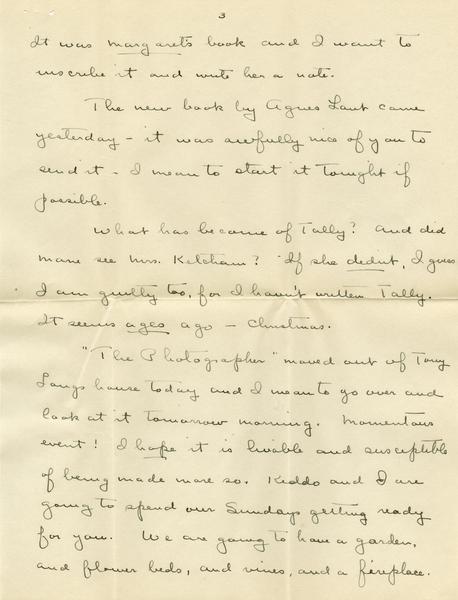 3
It was Margaret's book and I want to
inscribe it and write her a note.
The new book by Agnes Laut came
yesterday - it was awfully nice of you to
send it - I mean to start it tonight if
possible.
What has become of Tally? And did
Mame see Mrs. Ketcham? If she didn't, I guess
I am guilty too, for I haven't written Tally.
It seems ages ago - Christmas.
"The Photographer" moved out of Tony
Langs house today and I mean to go over and
look at it tomorrow morning. Momentous
event! I hope it is livable and susceptible
of being made more so. Keddo and I are
going to spend our Sundays getting ready
for you. We are going to have a garden,
and flower beds, and vines, and a fireplace.